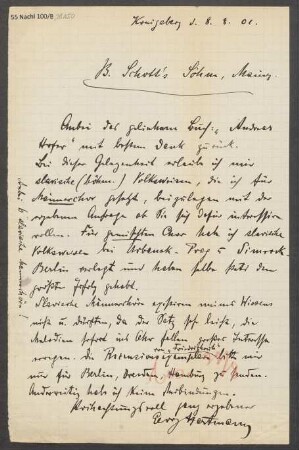 55 Nachl 100/B
Königsberg d. 8. 8. 01.
B. Schott's Söhne, Mainz.
Anbei das geliehene Buch: "Andreas
Hofer" mit bestem Dank zurück.
Bei dieser Gelegenheit erlaube ich mir
slavische (böhm.) Volksweisen, die ich für
Männerchor gesetzt, beizulegen mit der
ergebenen Anfrage ob Sie sich dafür interessiren
wollen. Für gemischten Chor habe ich slavische
Volksweisen bei Urbanek - Prag u. Simrock -
Berlin verlegt und haben selbe stets den
größten Erfolg gehabt.
Slavische Männerchöre existiren meines Wissens
nicht u. dürften, da der Satz sehr leicht, die
Melodien sofort ins Ohr fallen großes Interesse
erregen. Die bitte ich
nur für Berlin, Dresden, Hamburg zu senden.
Anderweitig hab ich keine Verbindungen.
Hochachtungsvoll ganz ergebener
Percy Hartmann
slavische Männerchöre!